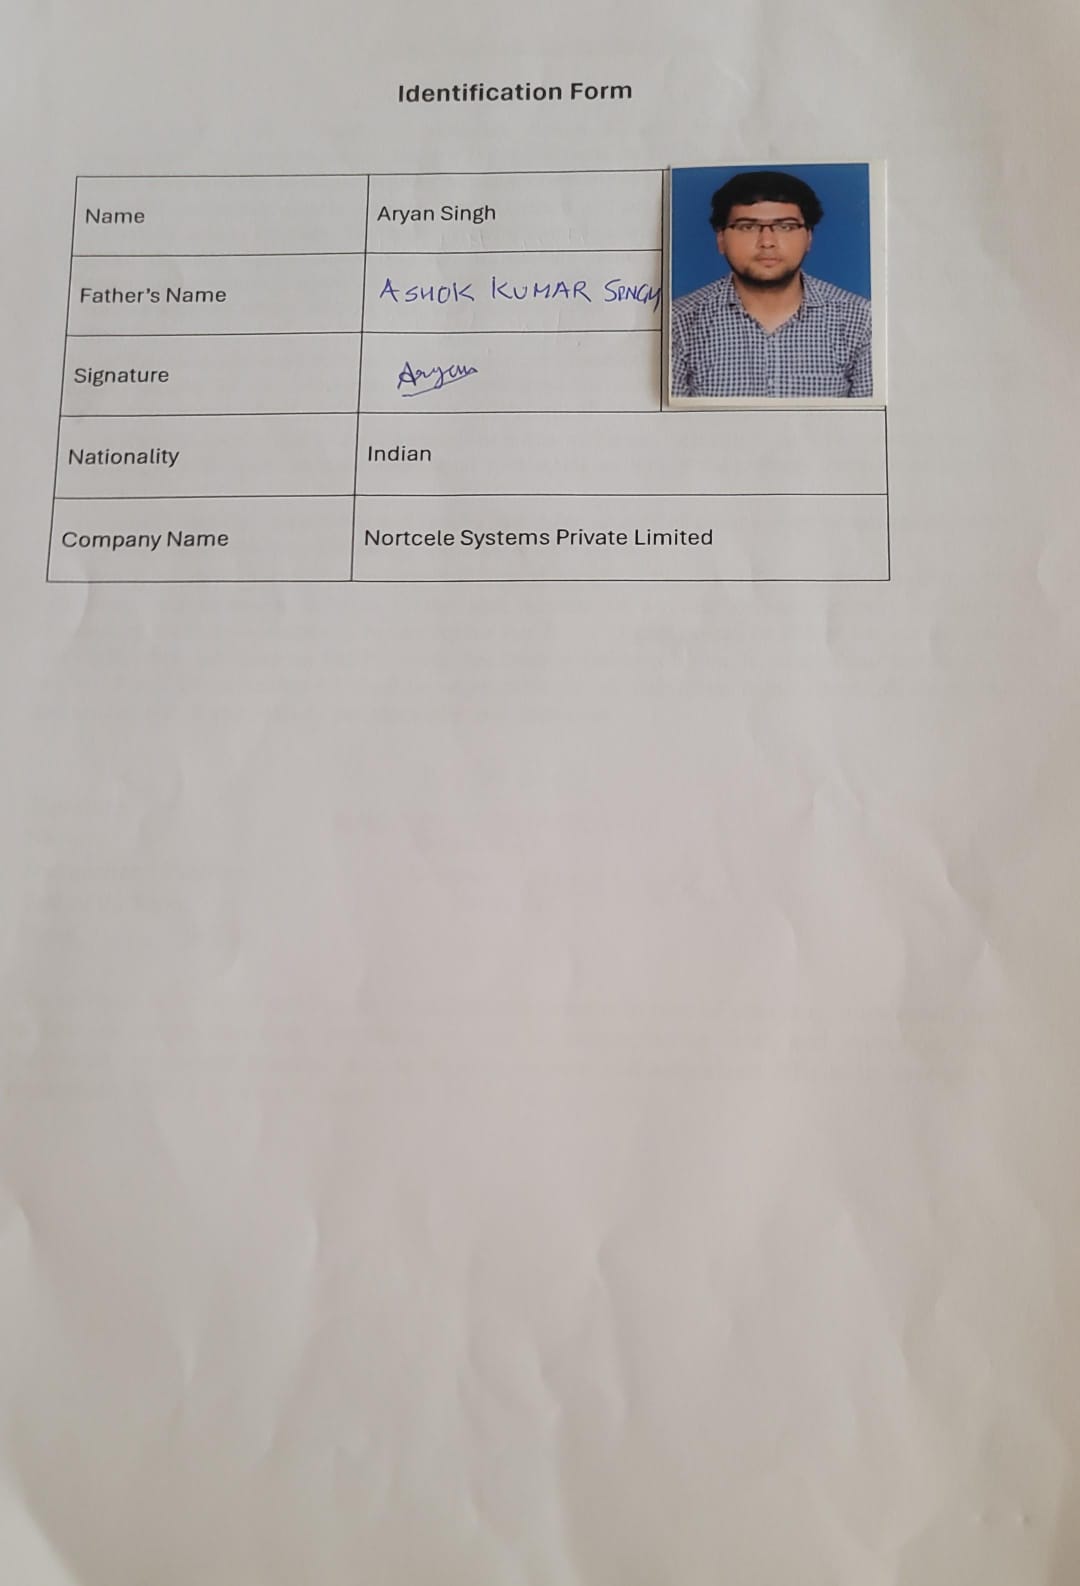 Identification Form
Name Aryan Singh
Father's Name ASHOK KUMAR SINGH
Signature Aryan
Nationality Indian
Company Name Nortcele Systems Private Limited